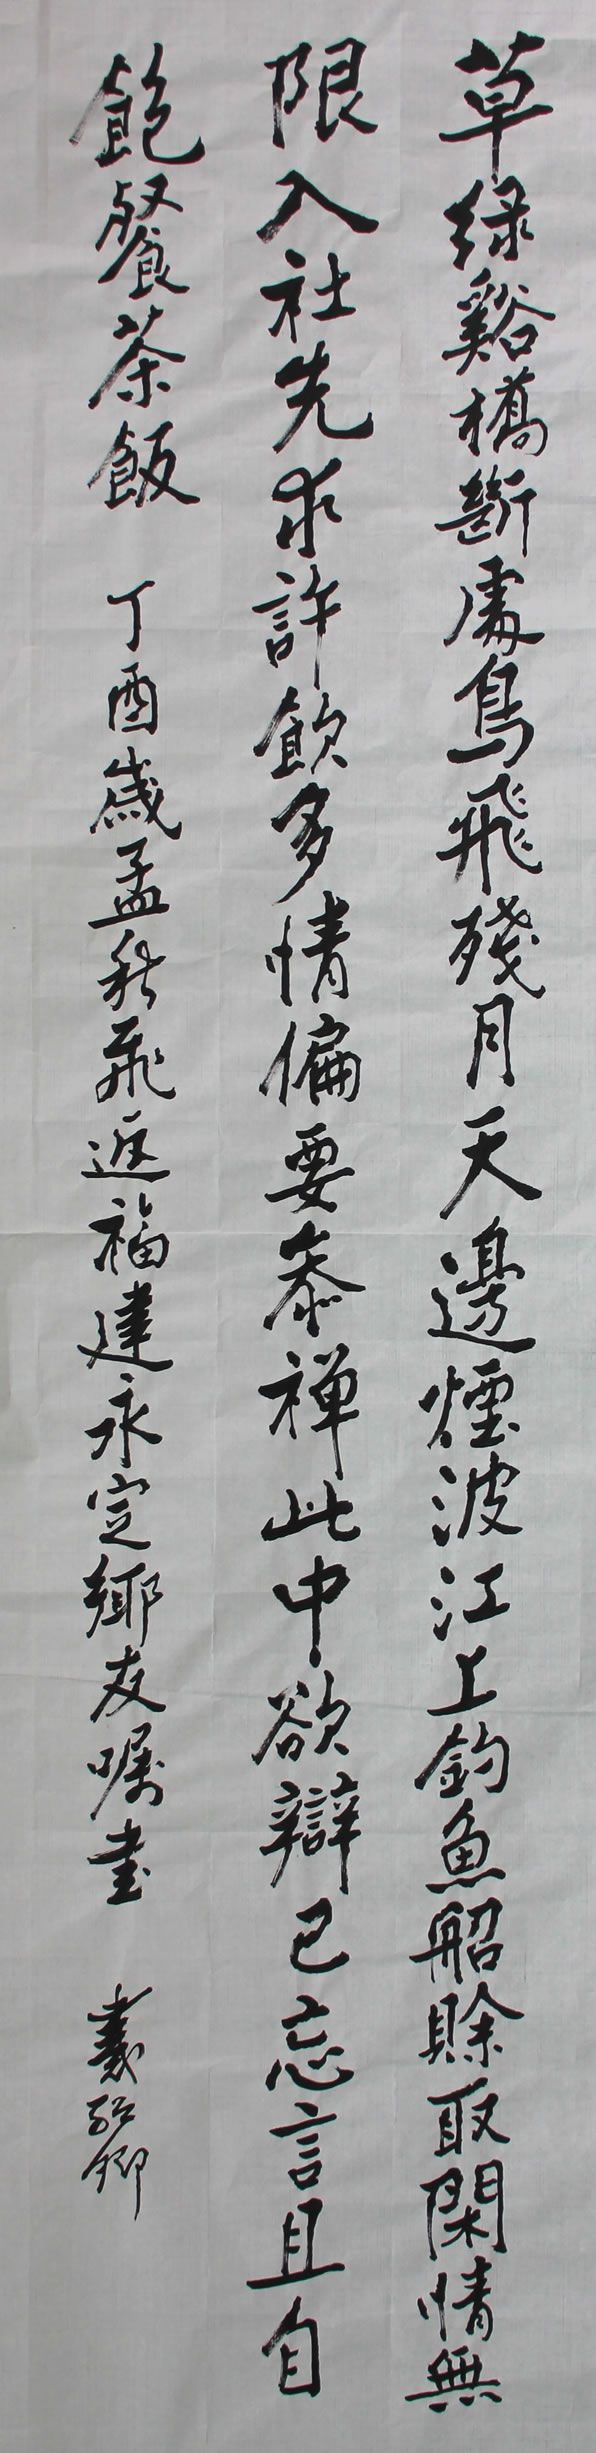 草綠谿橋斷處鳥飛殘月天邊煙波江上釣魚船賒取閑情無
限入社先求許飲多情偏要参禅此中欲辯已忘言且自
飽餐茶飯
丁酉歲孟秋飛返福建永定鄉友嘱書